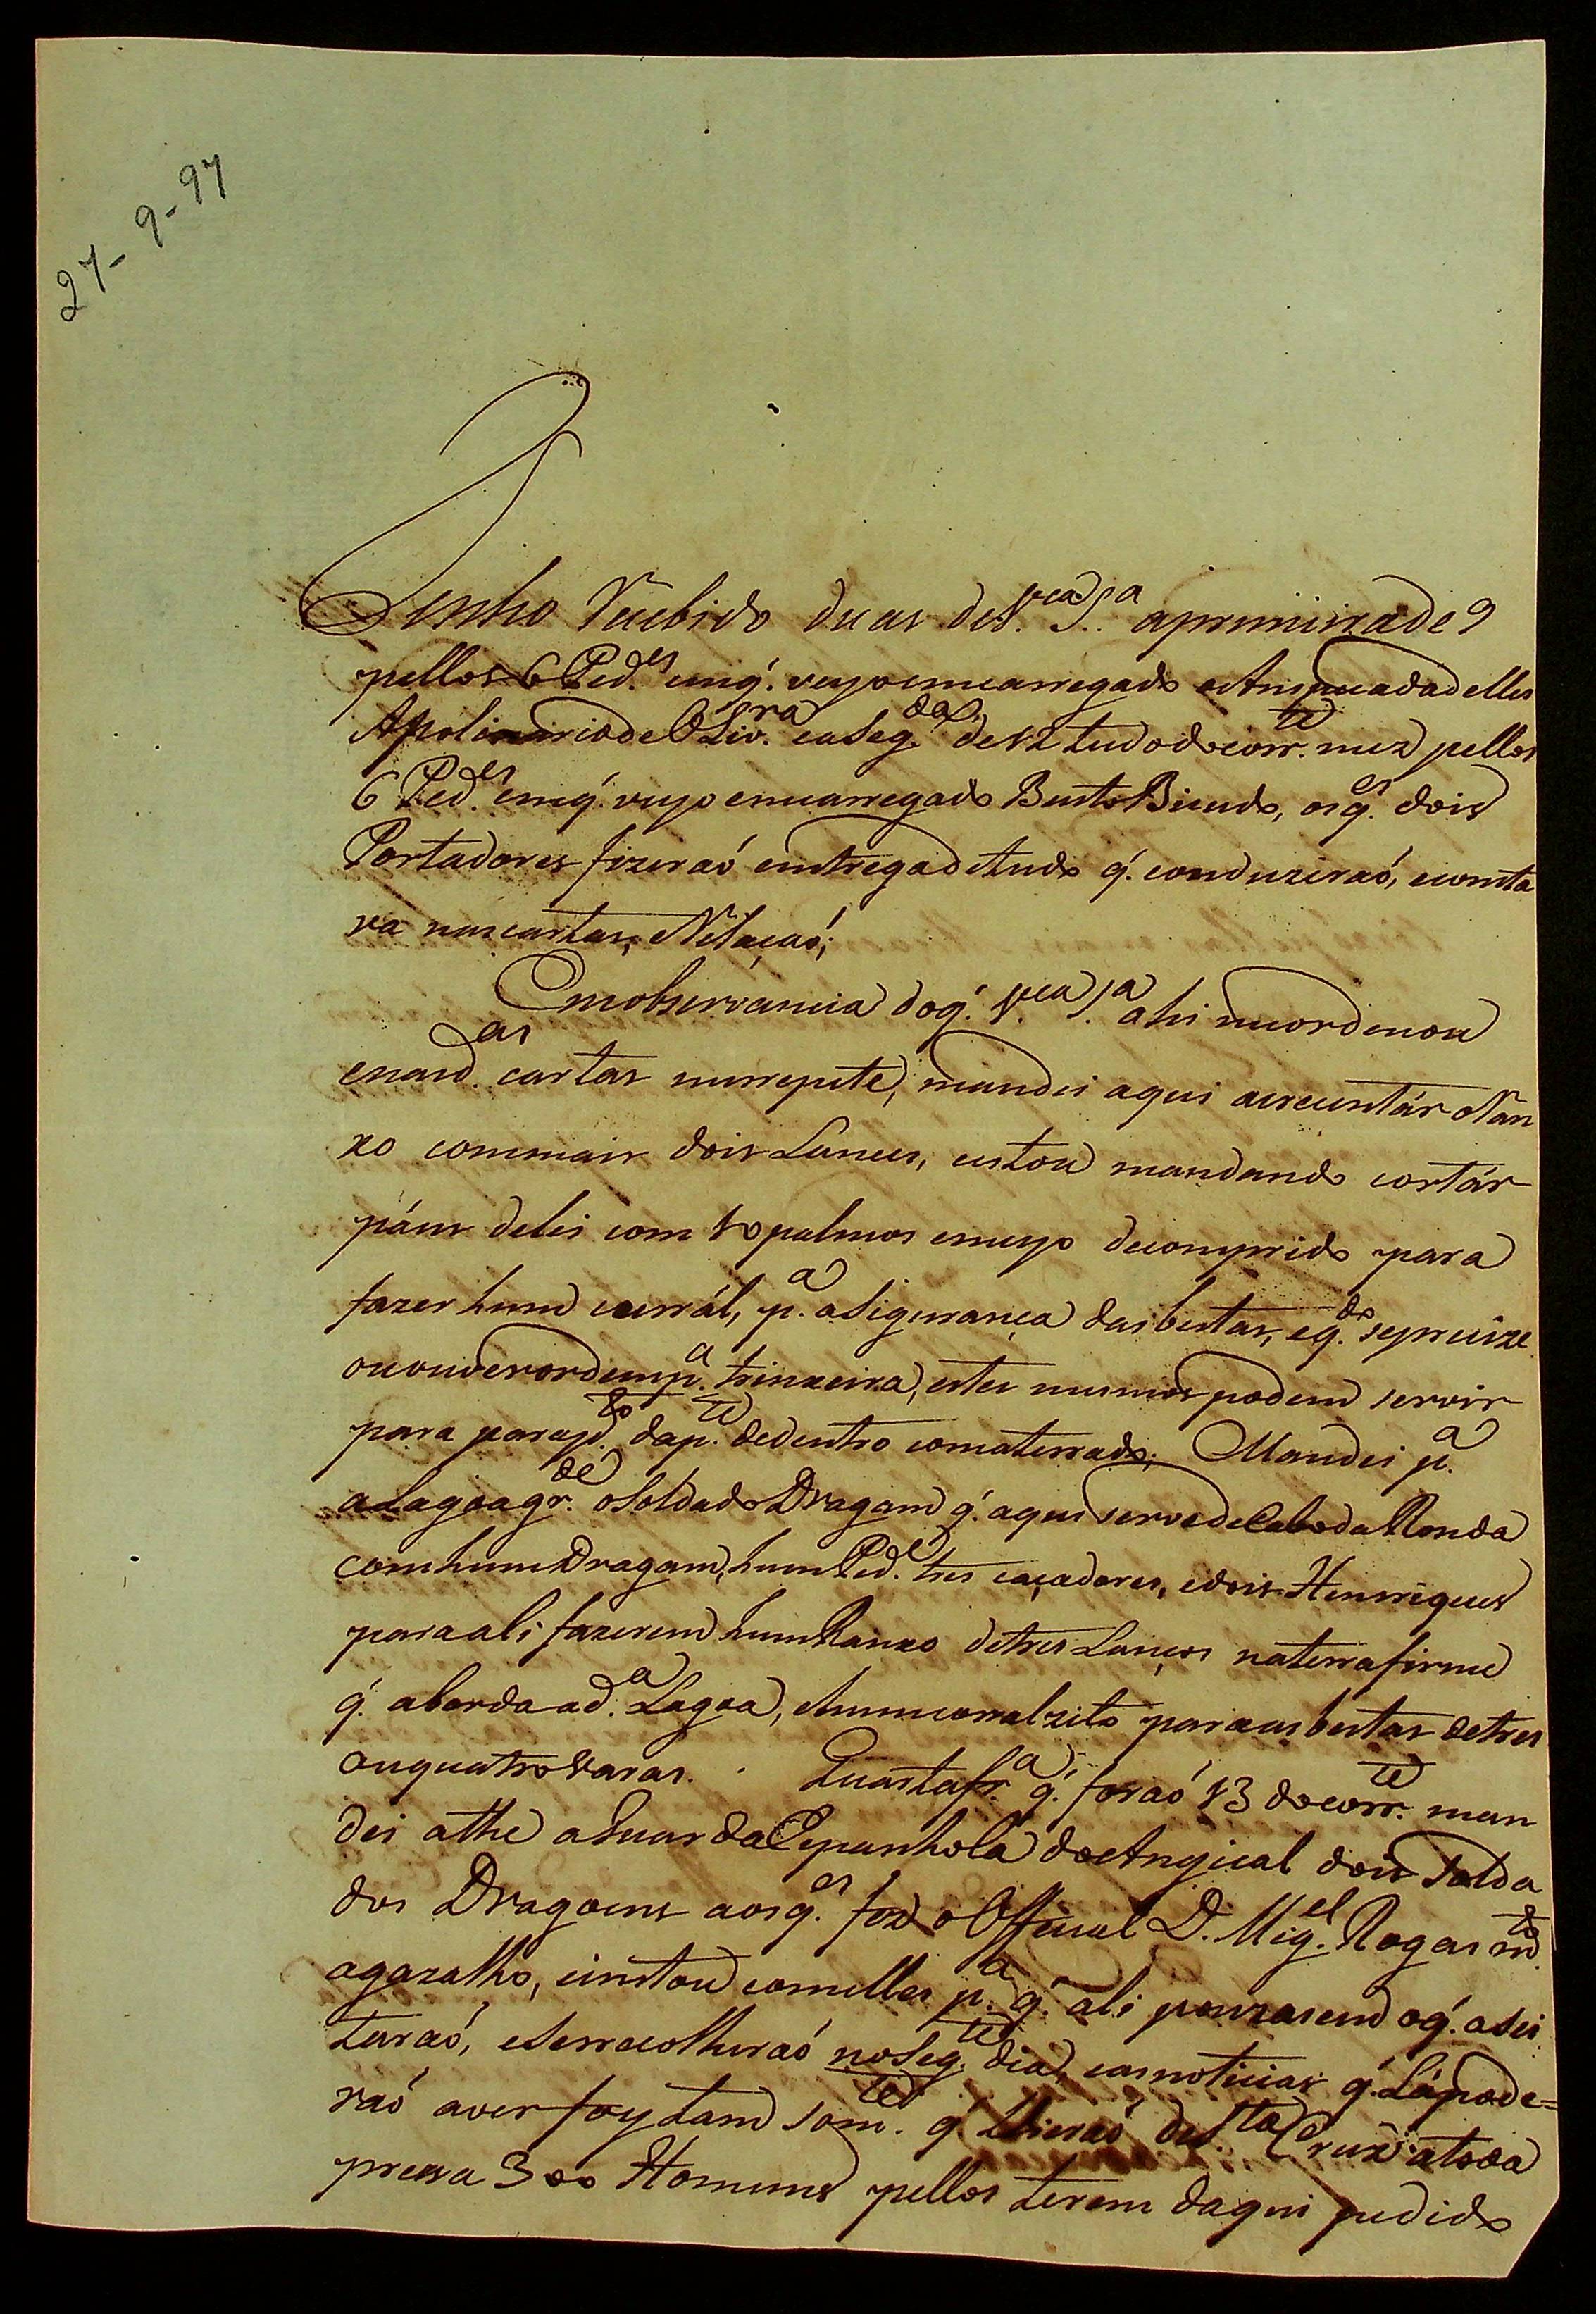 27-9-97
Tenho Recebido duas de V.ca S.a aprimeira de 9
pellos 6 Ped.es emq̃. veyo emcarregado eArmucadadelles
Apolinario de Oliv.ra easeg.da de 12 tudo do corr.te mez pellos
6 Ped.es emq̃. veyo emcarregado Bento Bicudo, os q.es dois
Portadores fizeraó emtrega detudo q̃. comduziraó, econsta
va nas cartas, eRelaçaó;
Em observancia doq̃. V.ca S.a ahi meordenou
enas d.as cartas merrepete, mandei aqui acrecentár oRan
xo commais dois Lances, estou mandando cortár
páus delei com 10 palmos emeyo decomprido para
fazer hum currál, p.a aSigurança das bestas, eq.do seprecize
ou ouver ordem p.a trinxeira, estes mesmos podem servir
para parap.to da p.te dedentro comaterrado; Mandei p.a
aLagoa gr.de oSoldado Dragam q̃. aqui serve de Cabo da Ronda
com hum Dragam, hum Ped.e tres caçadores, edois Henriques
para ali fazerem hum Ranxo detres Lanços naterra firme
q̃. aborda a d.a Lagoa, ehum curralzito para as bestas detres
ou quatro varas. Quarta fr.a q̃. foraó 13 do corr.te man
dei athe aGuarda Espanhola do Angical dois Solda
dos Dragoens aos q.es fez o Official D. Mig.el Rogas m.to
agazalho, einstou comelles p.a q̃. ali pouzasem oq̃. aSei
taraó, eSerrecolheraó noseg.te dia, eas noticias q̃. Lá pode=
raó aver foy tam som.te q̃. Lhieraó de S.ta Cruz atoda
pressa 300 Homens pellos terem daqui pedido